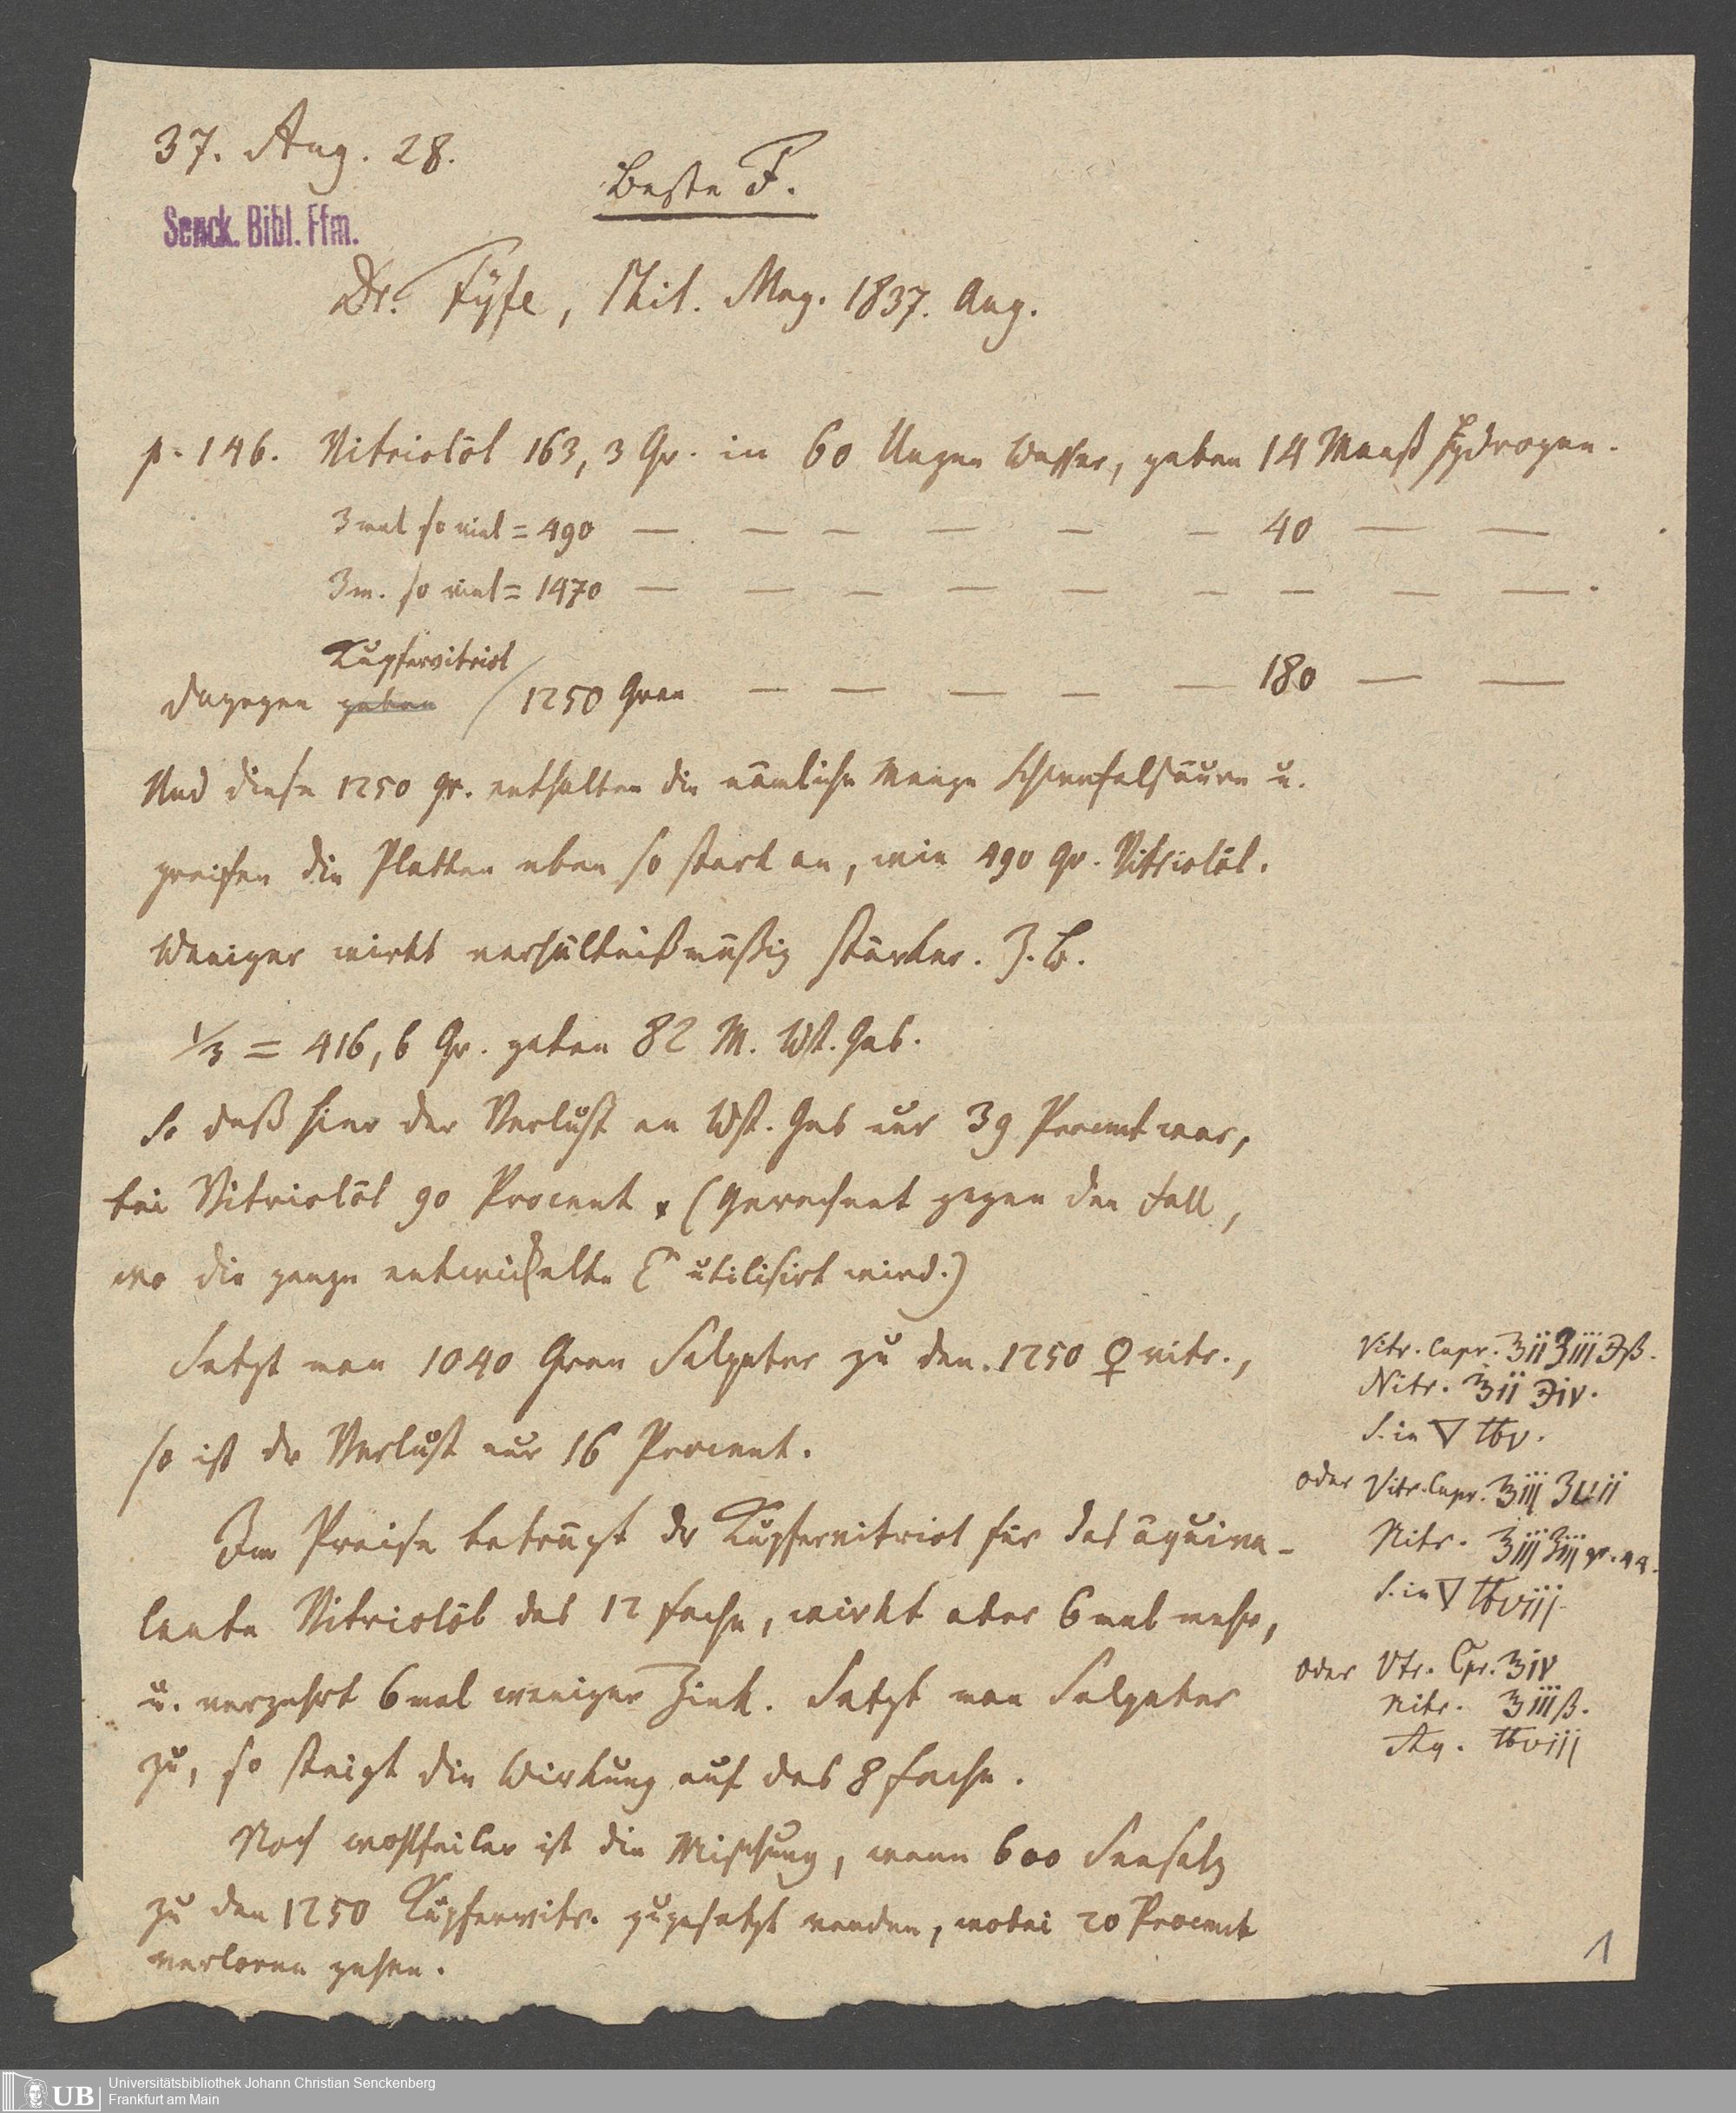 37. Aug. 28.
Beste F.
Senck. Bibl. Ffm.
Dr. Fyfe, Phil. Mag. 1837. Aug.
p. 146. Vitriolöl 163,3 Gr. in 60 Unzen Wasser, geben 14 Maaß Hydrogen.
3 mal so viel = 490 — — — — — — 40 — —
3 m. so viel = 1470 — — — — — — — — —.
Kupfervitriol
dagegen geben / 1250 Gran — — — — — 180 — —
Und diese 1250 gr. enthalten die nämliche Menge Schwefelsäure u.
greifen die Platten eben so stark an, wie 490 gr. Vitriolöl.
Weniger wirkt verhältnißmäßig stärker. Z. B.
1/3 = 416,6 Gr. geben 82 M. Wst. Gas.
So daß hier der Verlust an Wst. Gas nur 39 Procent war,
bei Vitriolöl 90 Procent. (Gerechnet gegen den Fall,
wo die ganze entwickelte E utilisirt wird.)
Setzt man 1040 Gran Salpeter zu den 1250 ♀ vitr.,
so ist der Verlust nur 16 Procent.
Im Preise beträgt der Kupfervitriol für das äquiva-
lente Vitriolöl das 12 fache, wirkt aber 6 mal mehr,
u. verzehrt 6 mal weniger Zink. Setzt man Salpeter
zu, so steigt die Wirkung auf das 8 fache.
Noch wohlfeiler ist die Mischung, wenn 600 Seesalz
zu den 1250 Kupfervitr. zugesetzt werden, wobei 20 Procent
verloren gehen.
Vitr. Cupr. ℥ii ʒiii ℈ß.
Nitr. ℥ii ℈iv.
S. in ▽ ℔v.
oder Vitr. Cupr. ℥iij ʒvii
Nitr. ℥iij ʒiij gr.
S. in ▽ ℔viij.
oder Vtr. Cpr. ℥iv
Nitr. ℥iiiß.
Aq. ℔viij
1
UB
Universitätsbibliothek Johann Christian Senckenberg
Frankfurt am Main